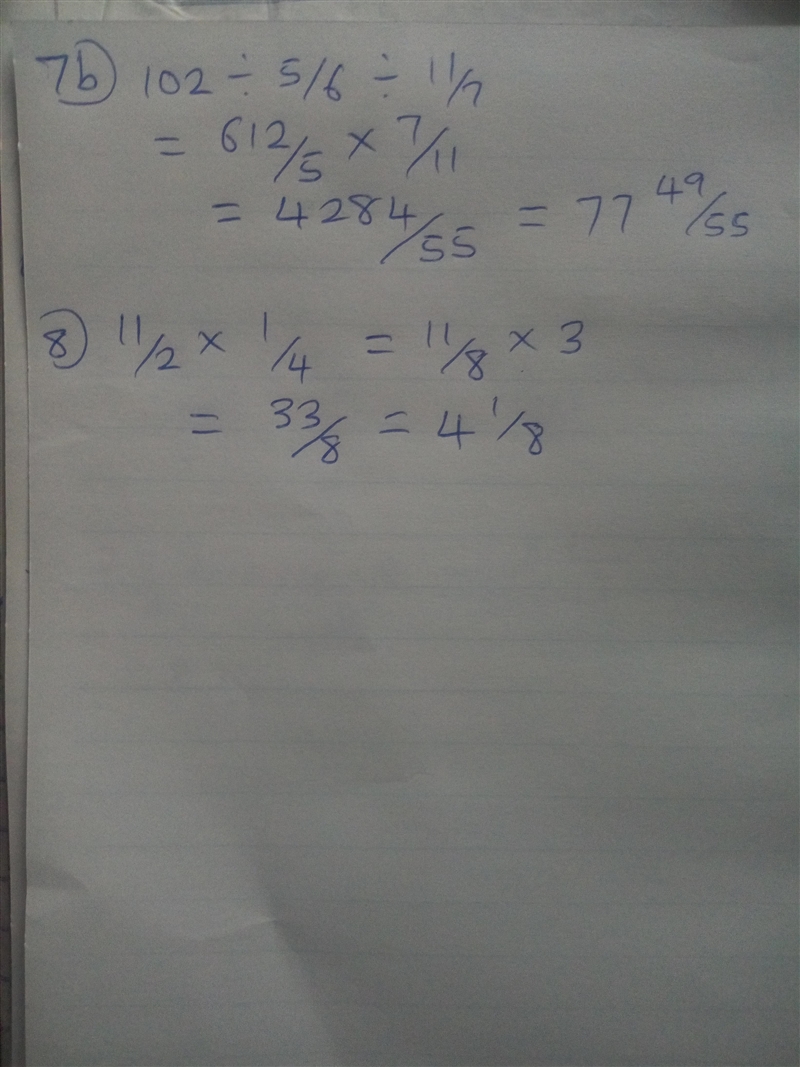 7b) 102 ÷ 5/6 ÷ 11/7
= 612/5 × 7/11
= 4284/55 = 77 49/55
8) 11/2 × 1/4 = 11/8 × 3
= 33/8 = 4 1/8